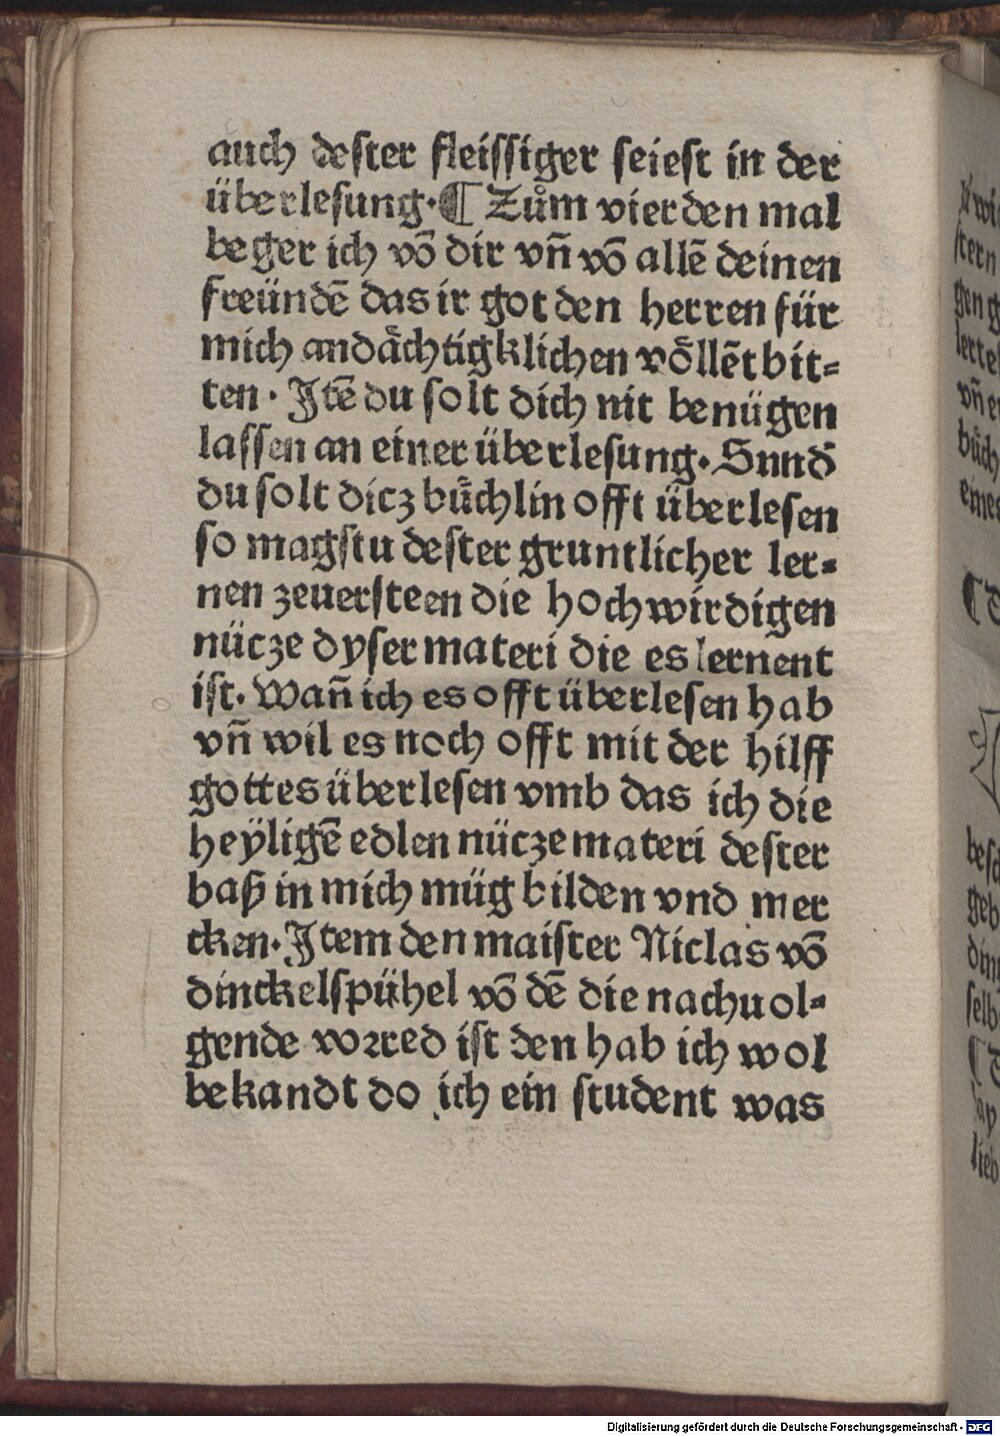 auch dester fleissiger seiest in der
überlesung·¶ Zům vierden mal
beger ich vō dir vñ vō allē deinen
freündē das ir got den herren für
mich andåchtigklichen vo̊llēt bit⸗
ten· Jtē du solt dich nit benügen
lassen an einer überlesung· Sund̄
du solt dicz bu̇chlin offt überlesen
so magstu dester gruntlicher ler⸗
nen zeuersteen die hochwirdigen
nücze dyser materi die es lernent
ist· Wañ ich es offt überlesen hab
vñ wil es noch offt mit der hilff
gottes überlesen vmb das ich die
heÿligē edlen nücze materi dester
baß in mich müg bilden vnd mer
cken· Jtem den maister Niclas vō
dinckelspühel vō dē die nachuol⸗
gende vorred ist den hab ich wol
bekandt do ich ein student was
Digitalisierung gefördert durch die Deutsche Forschungsgemeinschaft - DFG